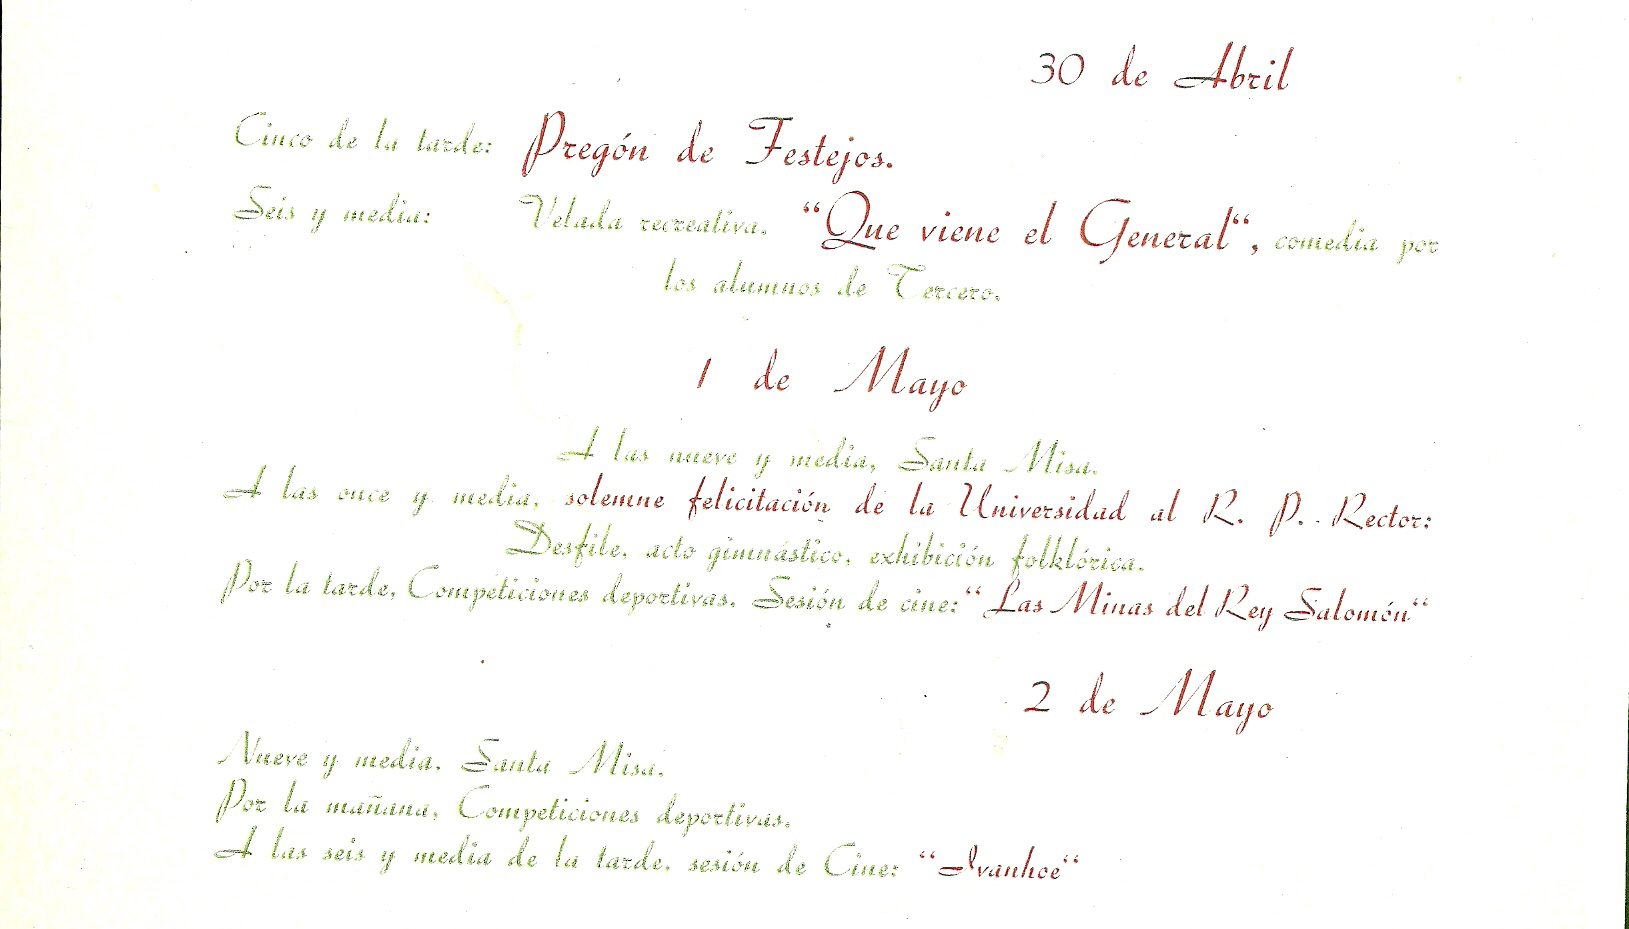 30 de Abril
Cinco de la tarde: Pregón de Festejos.
Seis y media: Velada recreativa. “Que viene el General“, comedia por
los alumnos de Tercero.
1 de Mayo
A las nueve y media, Santa Misa.
A las once y media, solemne felicitación de la Universidad al R. P. Rector:
Desfile, acto gimnástico, exhibición folklórica.
Por la tarde, Competiciones deportivas. Sesión de cine: “Las Minas del Rey Salomón“
2 de Mayo
Nueve y media. Santa Misa.
Por la mañana, Competiciones deportivas.
A las seis y media de la tarde, sesión de Cine: “Ivanhoe“